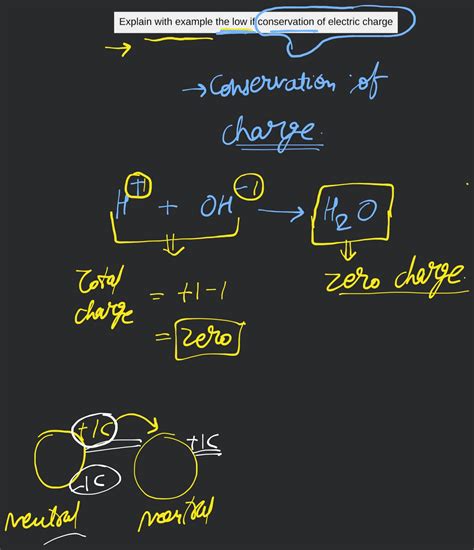 Explain with example the low if conservation of electric charge
→ Conservation of
charge.
H⁺¹ + OH⁻¹ → H₂O
Total
charge = +1-1
= zero
zero charge.
+1C
-1C
+1C
neutral
neutral